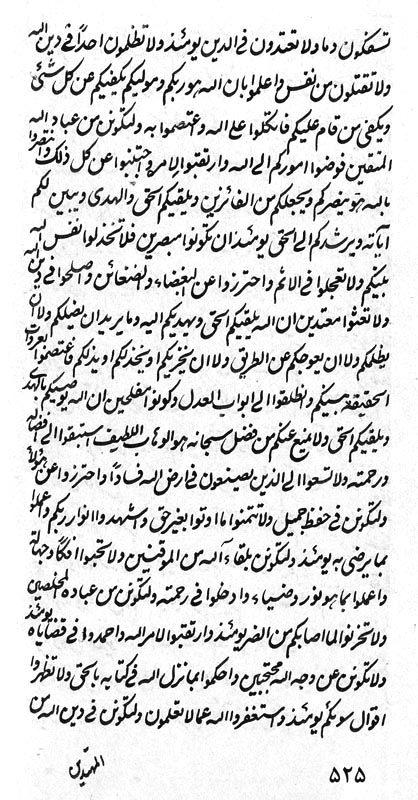 تسفكون دما ولا تعتدون فی الدين يومئذ ولا تظلمون احداً فی دين الله
ولا تقتلون من نفس واعلموا بان الله هو ربكم وموليكم يكفيكم عن كل شئ
ويكفی من قام عليكم فاتكلوا علی الله واعتصموا به ولتكونن من عباد الله
المتقين فوضوا اموركم الی الله وارتقبوا لامره واجتنبوا عن كل ذلك وانتصروا
بالله هو ينصركم ويجعلكم من الفائزين ويلقيكم الحق والهدی ويبين لكم
اياته ويرشدكم الی الحق يومئذ ان تكونوا مبصرين فلا تتخذلوا نفس لله
بينكم ولا تعجلوا فی الاثم واحترزوا عن البغضاء والضغائن واصلحوا فی دين الله
ولا تعثوا معتدين ان الله يلقيكم الحق ويهديكم اليه وما يريد ان يضلكم ولا ان
يظلمكم ولا ان يعوجكم عن الطريق ولا ان يخزيكم او يخذلكم او يذلكم فاعتصموا
الحقيقة بينكم وانطلقوا الی ابواب العدل وكونوا مفلحين ان الله يوصيكم بالهدی
ويلقيكم الحق ولا يمنع عنكم من فضل سبحانه هو الوهاب اللطيف استبقوا الی افضاله
ورحمته ولا تسعوا الی الذين يصنعون فی ارض الله فساداً واحترزوا عن
ولتكونن فی حفظ جميل ولا تتمنوا ما اوتوا بغير حق واشهدوا انوار ربكم واعملوا
بما يرضی به يومئذ ولتكونن بلقاء الله من الموقنين ولا تحبوا افكاً وجهالة
واعملوا بما هو نور وضياء وادخلوا فی رحمته ولتكونن من عباده المخلصين
ولا تحزنوا لما اصابكم من الضر يومئذ وارتقبوا لامر الله واحمدوا فی قضاياه يومئذ
ولا تكونن عن وجه الله محتجبين واحكموا بما نزل الله فی كتابه بالحق ولا تظهروا
اقوال سوئكم يومئذ واستغفروا الله عما لا تعلمون ولتكونن فی دين الله من
المهتدين
۵۲۵